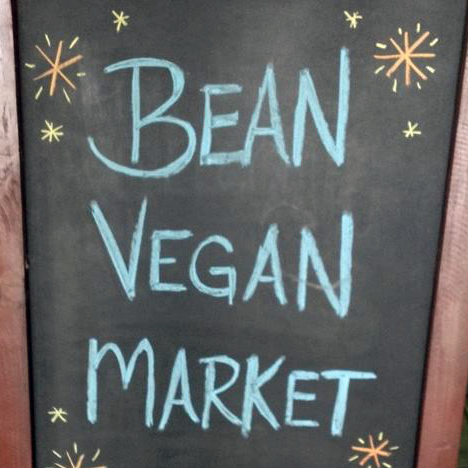 BEAN
VEGAN
MARKET